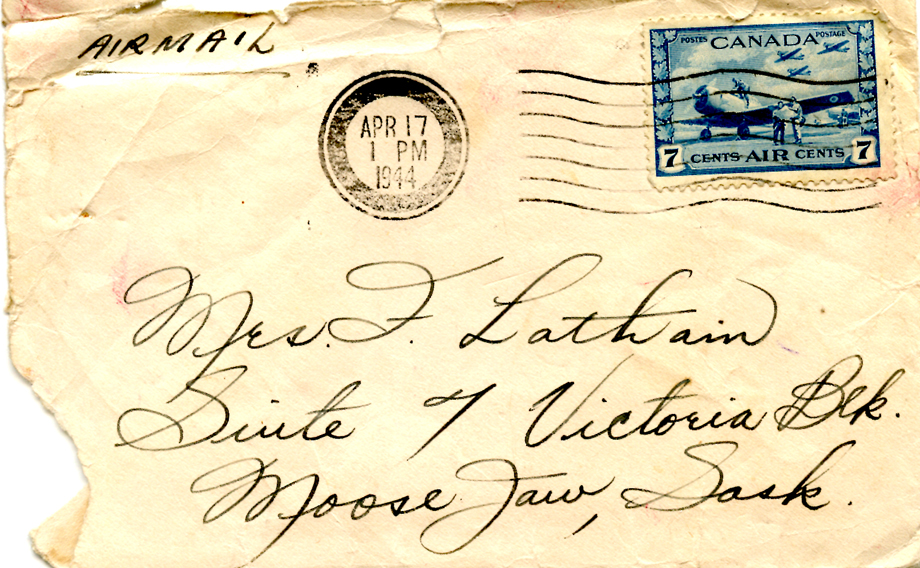 AIRMAIL
POSTES CANADA POSTAGE
APR 17
1 PM
1944
7 CENTS AIR CENTS 7
Mrs. F. Latham
Suite 7 Victoria Blk.
Moose Jaw, Sask.